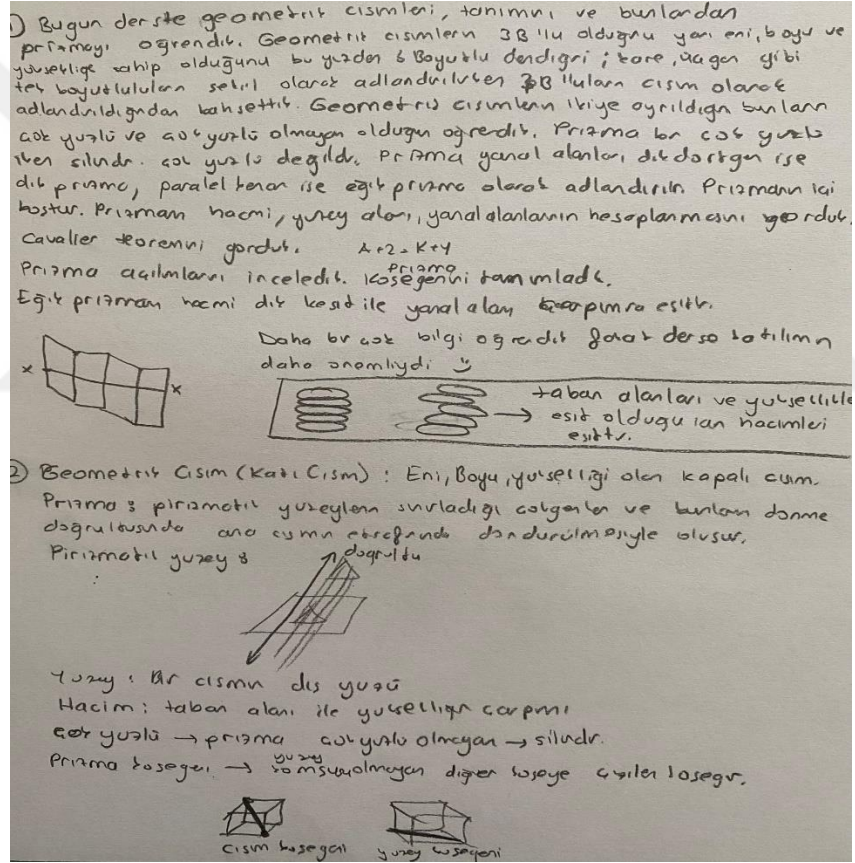 1) Bugun derste geometrik cisimleri, tanımını ve bunlardan
prizmayı ogrendik. Geometrik cisimlern 3B'lu olduğnu yanı eni, boyu ve
yuksekliğe sahip olduğunu bu yuzden 3 Boyutlu dendigni ; kare, üçgen gibi
tek boyutluluların sekil olarak adlandırılırken 3B'luların cisim olarak
adlandırıldıgından bahsettik. Geometrik cisimlern ikiye ayrıldıgn bunların
çok yuzlü ve çok yuzlü olmayan oldugun oğrendik. Prizma br cok yuzlu
iken silindr. çok yuzlu degildr. Prizma yanal alanları dikdortgen ise
dik prizma, paralel kenar ise eğik prizma olarak adlandırılır. Prizmanın içi
bostur. Prizmanın hacmi, yuzey alanı, yanal alanlarının hesaplanmasını gorduk.
Cavalier teoremni gorduk. A+2=K+Y
Prizma açılımlarını inceledik. Prizma kosegenini tanımladık.
Eğik prizmanın hacmi dik kesit ile yanal alan çarpımına esittr.
Daha br cok bilgi ogrendik fakat derse katılımın
daha onemliydi
x x
taban alanları ve yukseklikle
→ esit oldugu ıcın hacimleri
esittr.
2) Geometrik Cisim (Katı Cism) : Eni, Boyu, yuksekliği olan kapalı cisim.
Prizma : pirizmatik yuzeylern sınırladığı çokgenler ve bunların donme
dogrultusunda ana cismn etrafında dondurülmesiyle olusur.
Pirizmatik yuzey : dogrultu
Yuzey : Bir cismn dıs yuzü
Hacim : taban alanı ile yuksekliğin çarpımı
çok yuzlü → prizma çok yuzlu olmayan → silindr.
Prizma kosegeni → yuzey komsusu olmayan diğer koseye çizilen kosegn.
cisim kosegeni yuzey kosegeni